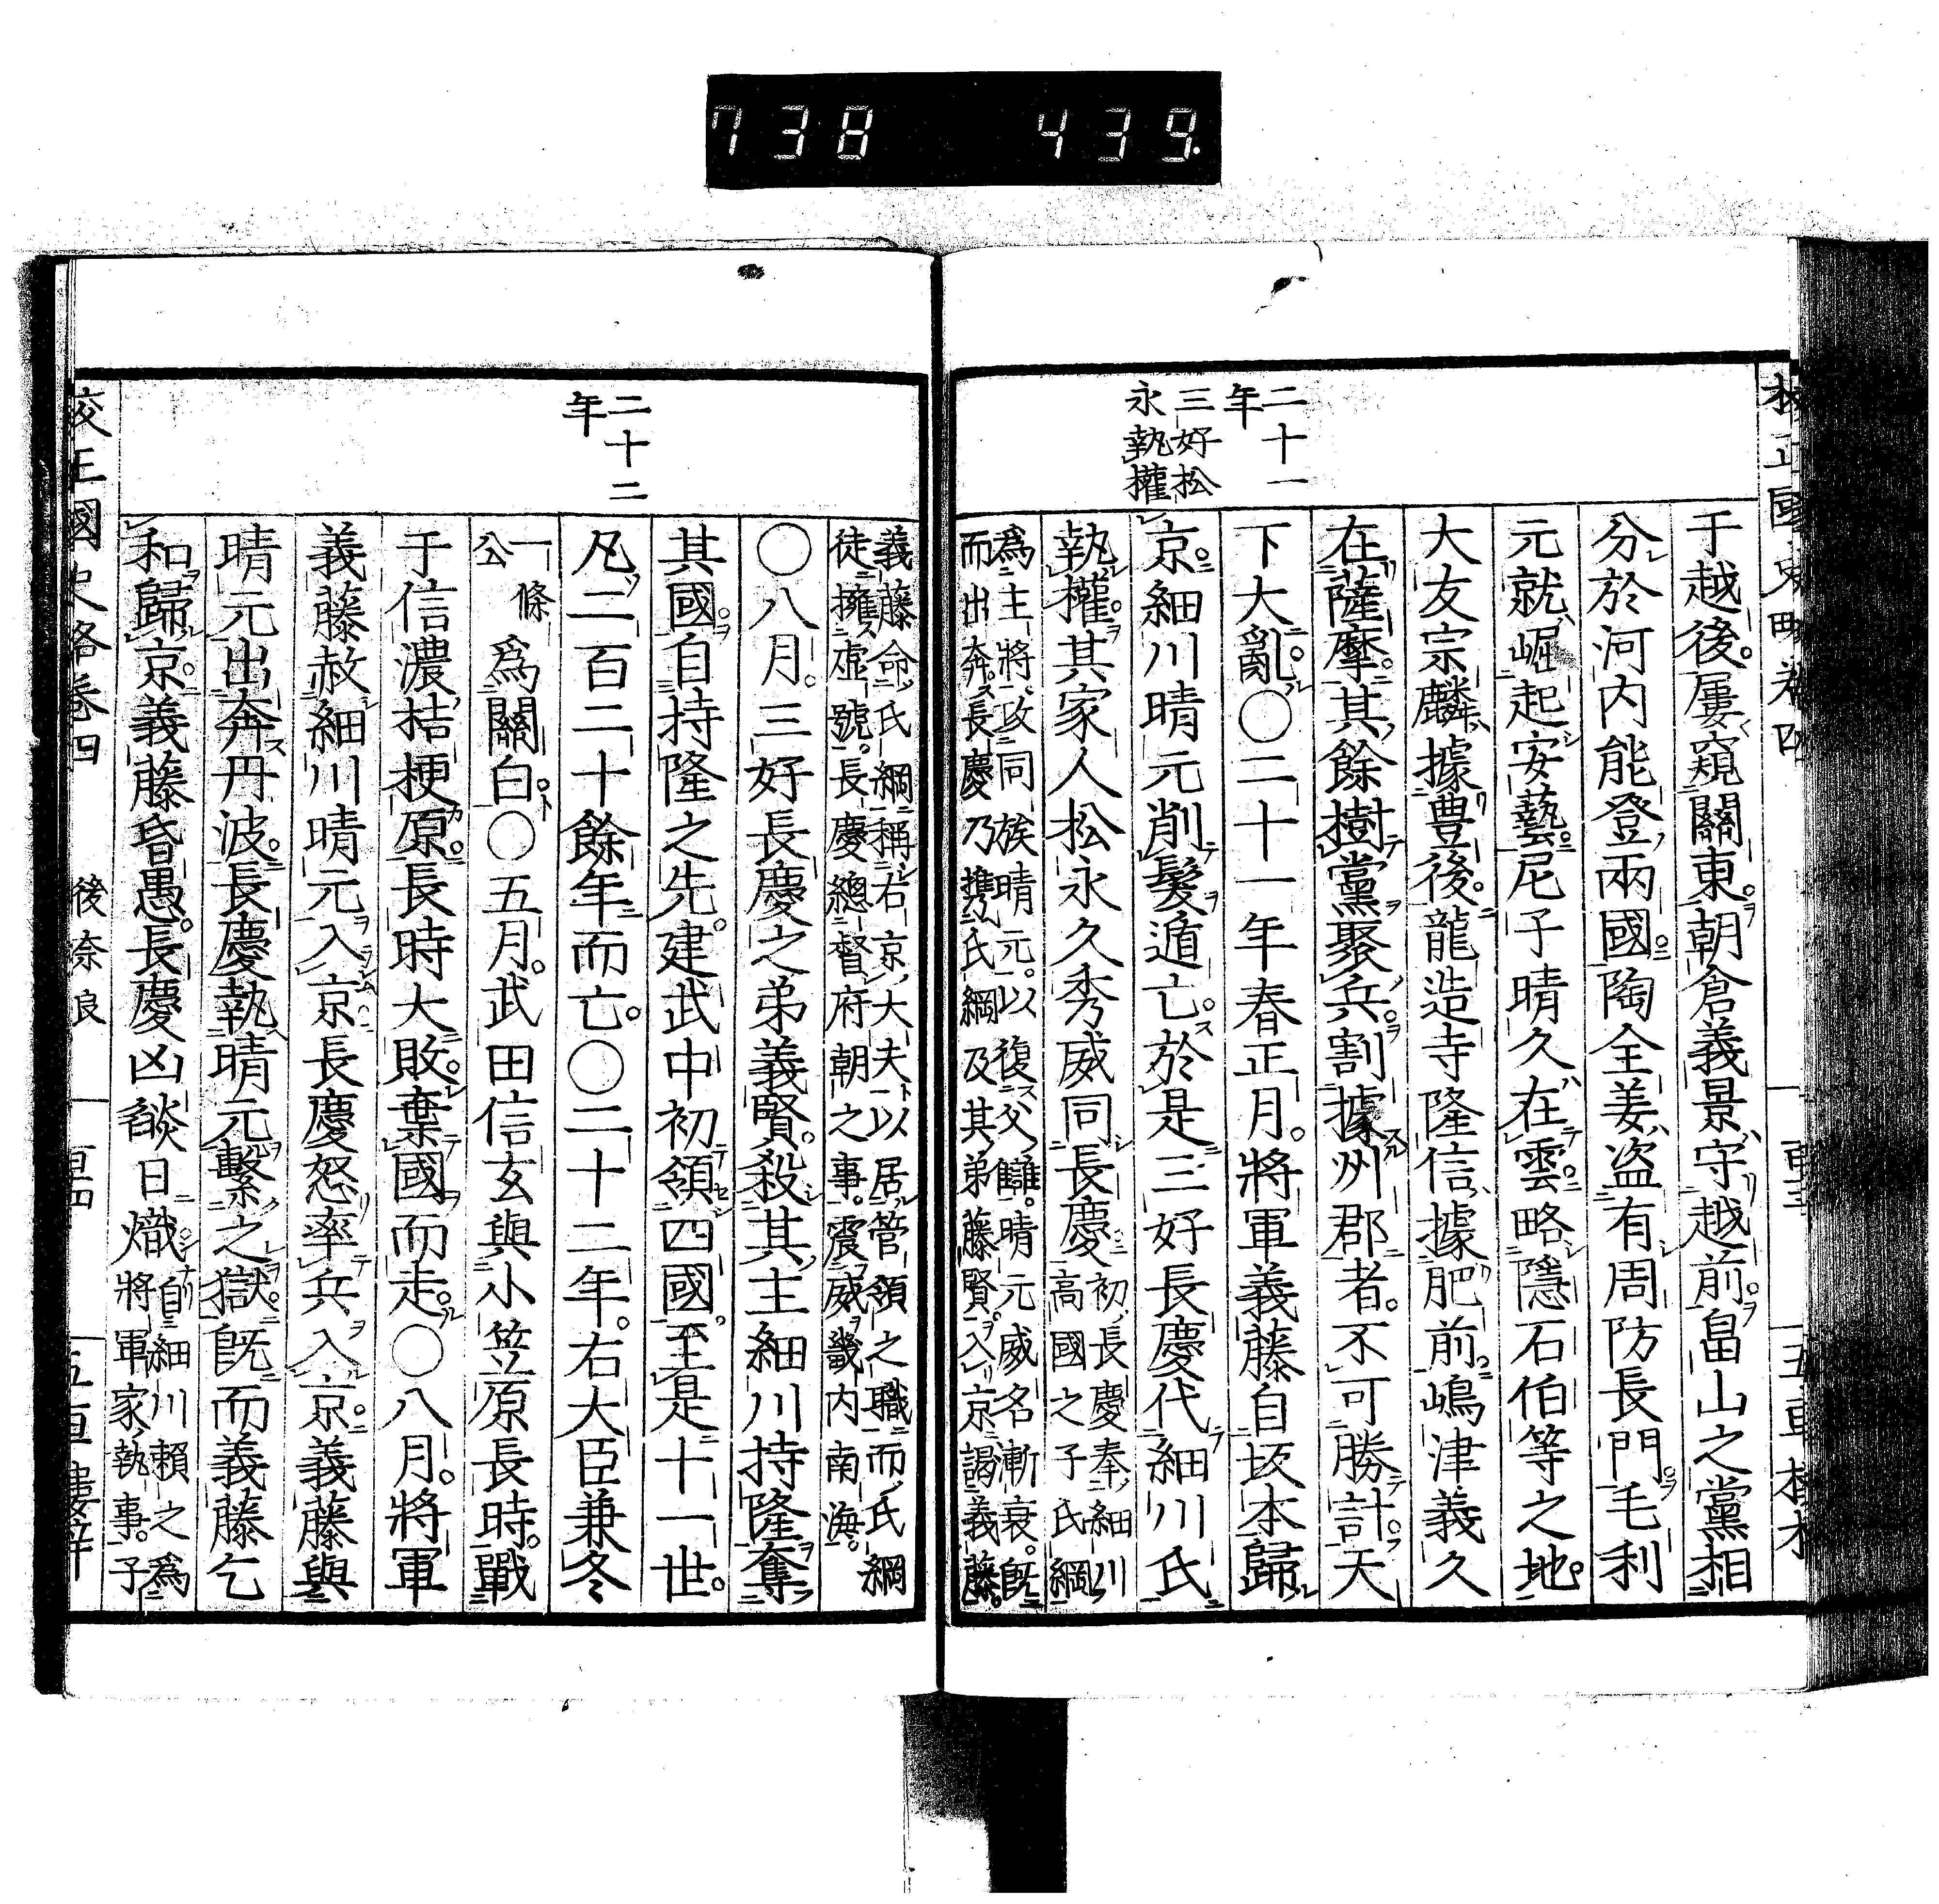 738 439.
校正國史略卷四
二十一
年
三好松
永執權
于越後。屢窺關東。朝倉義景守越前。畠山之黨相
分於河內能登兩國。陶全姜盜有周防長門。毛利
元就崛起安藝。尼子晴久在雲。略隱石伯等之地。
大友宗麟據豊後。龍造寺隆信據肥前。嶋津義久
在薩摩。其餘樹黨聚兵。割據州郡者。不可勝計。天
下大亂。〇二十一年春正月。將軍義藤自坂本歸
京。細川晴元削髮遁亡。於是三好長慶代細川氏
執權。其家人松永久秀威同長慶
初長慶奉細川
高國之子氏綱
爲主將攻同族晴元。以復父讎。晴元威名漸衰。旣
而出奔。長慶乃携氏綱及其弟藤賢。入京謁義藤。
二十二
年
義藤命氏綱稱右京大夫以居管領之職而氏綱
徒擁虛號。長慶總督府朝之事。震威畿内南海。
〇八月。三好長慶之弟義賢。殺其主細川持隆奪
其國。自持隆之先。建武中初領四國。至是十一世。
凡二百二十餘年而亡。〇二十二年。右大臣兼冬
一條
公
爲關白。〇五月。武田信玄與小笠原長時。戰
于信濃桔梗原。長時大敗。棄國而走。〇八月。將軍
義藤赦細川晴元入京長慶怒率兵入京。義藤與
晴元出奔丹波。長慶執晴元繫之獄。旣而義藤乞
和歸京。義藤昏愚。長慶凶燄日熾
自細川賴之爲
將軍家執事。子
校正國史略卷四 後奈良